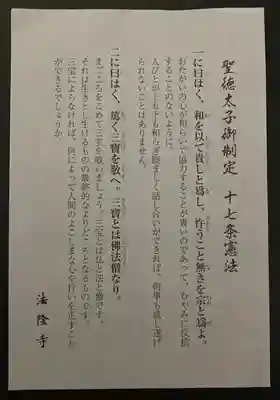 聖徳太子御制定 十七条憲法
一に曰はく、和を以て貴しと為し、忤うこと無きを宗と為よ。
おたがいの心が和らいで協力することが貴いのであって、むやみに反抗
することのないように
人びとが上も下も和らぎ睦まじく話し合いができれば、何事も成し遂げ
られないことはありません。
二に曰はく、篤く三寶を敬へ。三寶とは佛法僧なり。
まごころをこめて三宝を敬いましょう。三宝とは仏と法と僧です。
それは生きとし生けるものの最終的なよりどころとなるものです。
三宝によらなければ、何によって人間のよこしまな心や行いを正すこと
ができるでしょうか
法隆寺